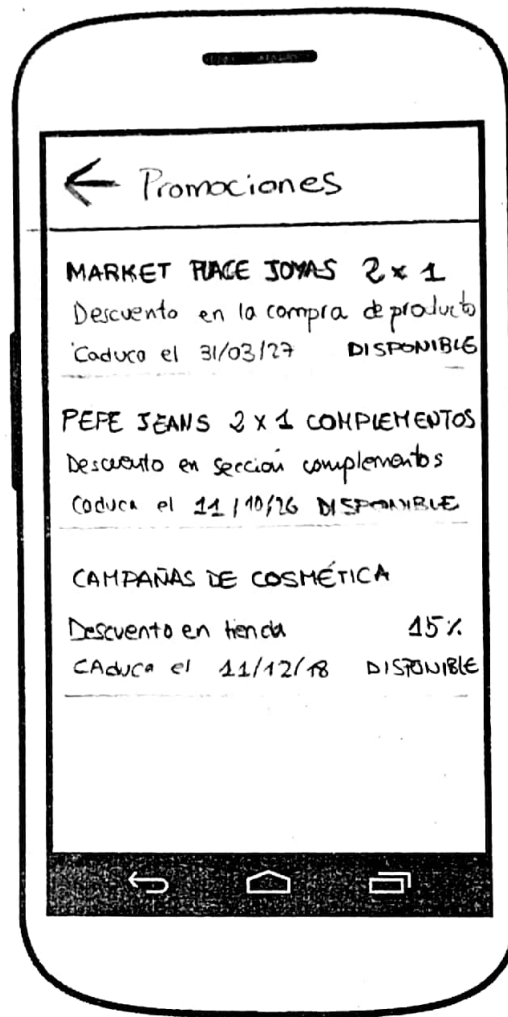 ← Promociones
MARKET PLACE JOYAS 2 x 1
Descuento en la compra de producto
Caduca el 31/03/27 DISPONIBLE
PEPE JEANS 2 X 1 COMPLEMENTOS
Descuento en sección complementos
Caduca el 11/10/26 DISPONIBLE
CAMPAÑAS DE COSMÉTICA
Descuento en tienda 15%
CAduca el 11/12/18 DISPONIBLE